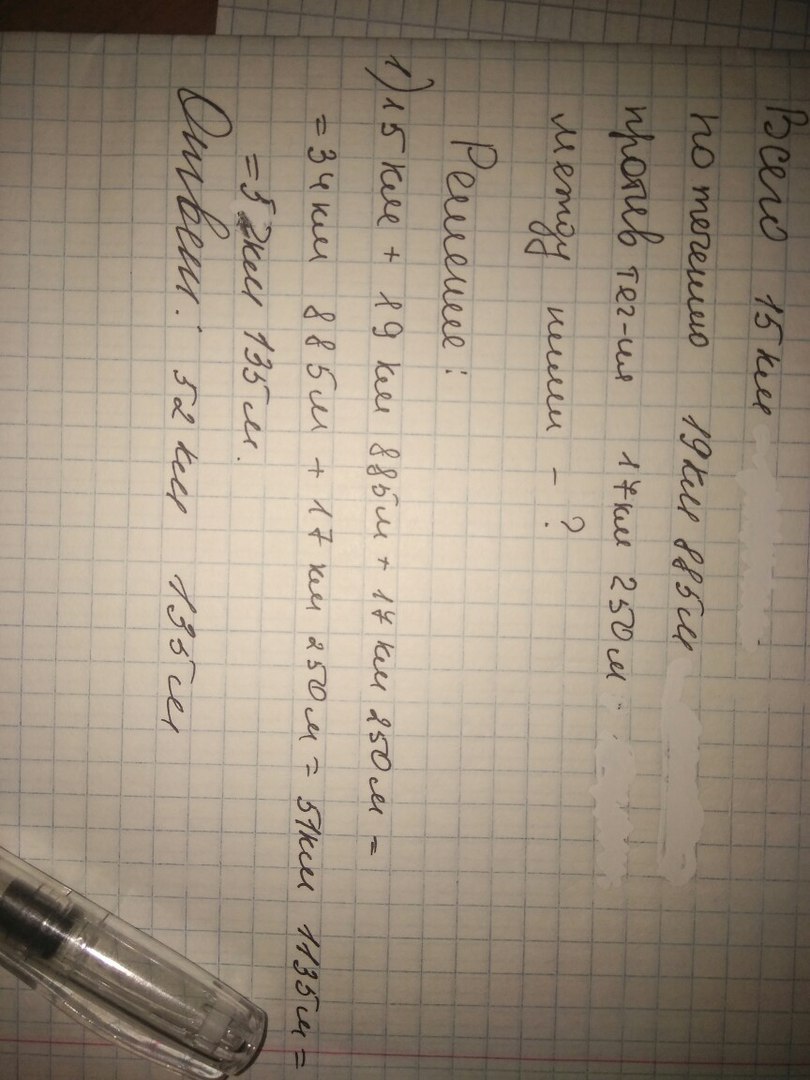 Всего 15 км
по течению 19 км 885м
против теч-ия 17км 250м
между ними - ?
Решение:
1) 15 км + 19 км 885м + 17 км 250м =
= 34 км 885м + 17 км 250м = 51км 1135м =
= 52км 135м.
Ответ: 52 км 135м